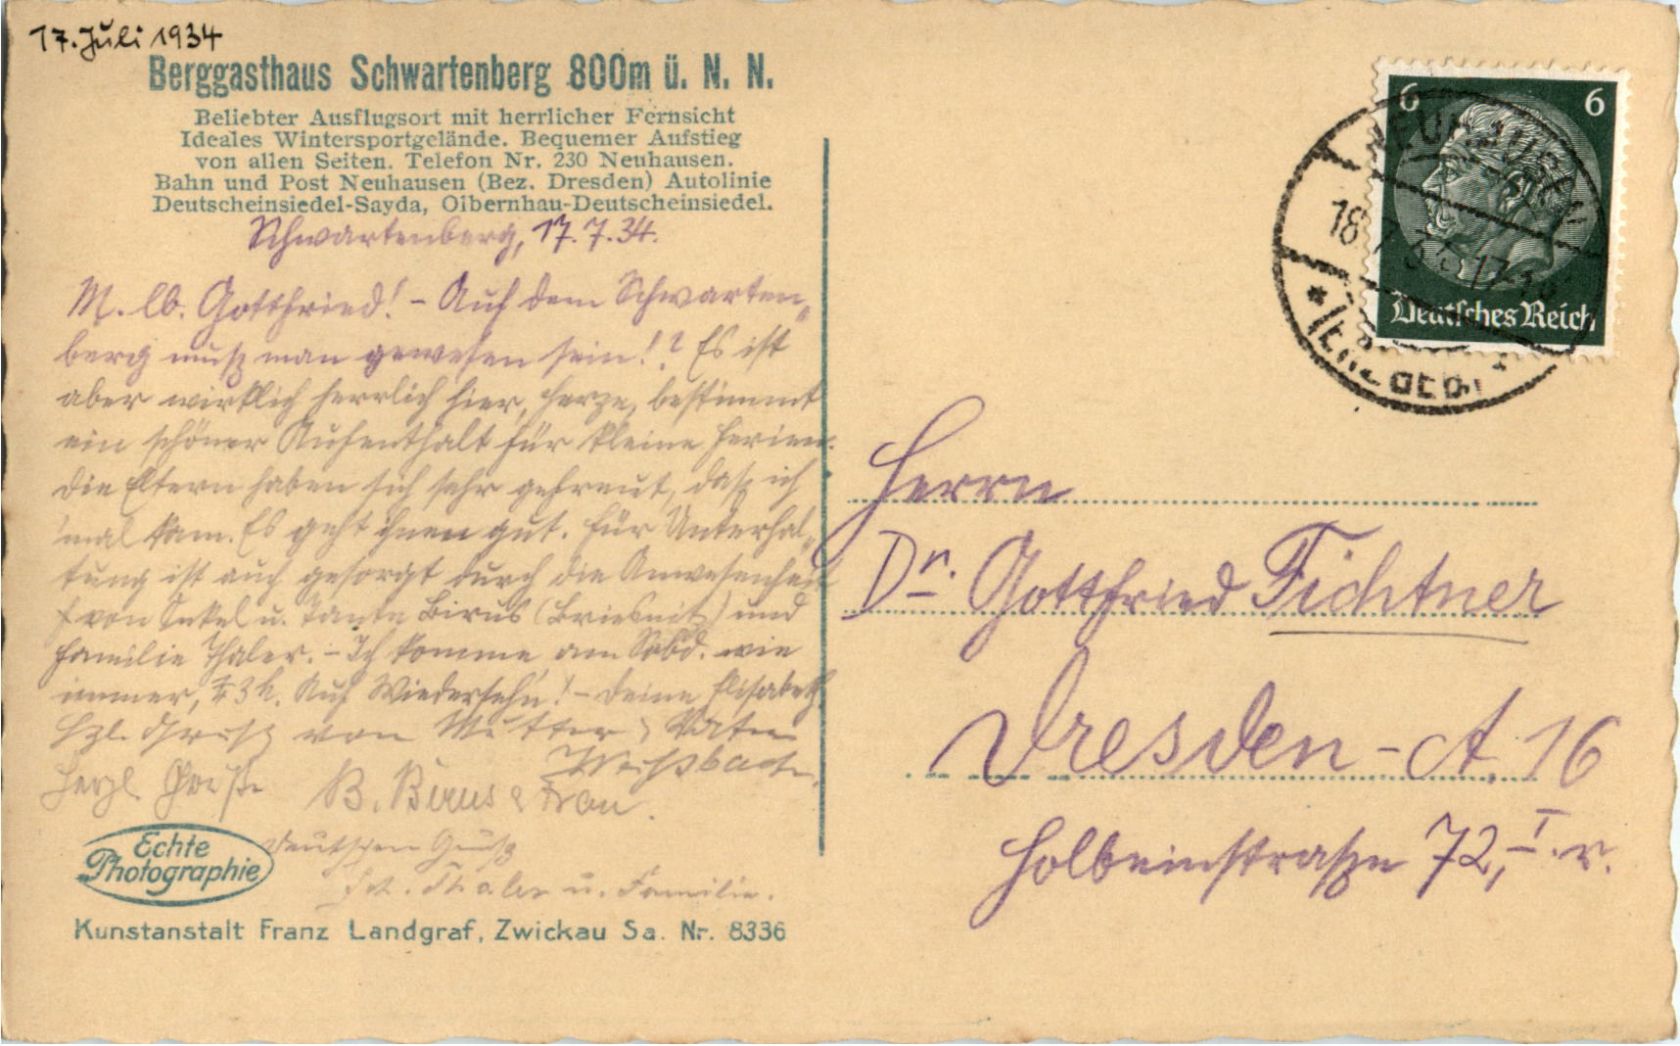 17. Juli 1934
Berggasthaus Schwartenberg 800m ü. N. N.
Beliebter Ausflugsort mit herrlicher Fernsicht
Ideales Wintersportgelände. Bequemer Aufstieg
von allen Seiten. Telefon Nr. 230 Neuhausen.
Bahn und Post Neuhausen (Bez. Dresden) Autolinie
Deutscheinsiedel-Sayda, Olbernhau-Deutscheinsiedel.
Schwartenberg, 17.7.34.
M. lb. Gottfried! – Auf dem Schwarten-
berg muß man gewesen sein!? Es ist
aber wirklich herrlich hier, bestimmt
ein schöner Aufenthalt für kleine Ferien.
Die Eltern haben sich sehr gefreut, daß ich
'mal kam. Es geht ihnen gut. Für Unterhal-
tung ist auch gesorgt durch die Anwesenheit
von Onkel u. Tante Birus (Briesnitz) und
Familie Thaler. – Ich komme am Sobd. wie
immer, 3 h. Auf Wiedersehn! – Deine Elisabeth.
Hzl. Gruß von Mutter & Vater
Weißbach.
Herzl. Grüße B. Birus & Frau.
Deutschen Gruß
Thaler u. Familie.
Echte
Photographie
Kunstanstalt Franz Landgraf, Zwickau Sa. Nr. 8336
6 6
Deutsches Reich
NEUHAUSEN
18.7.34 17-18
* (ERZGEB.) *
Herrn
Dr. Gottfried Fichtner
Dresden-A. 16
Holbeinstraße 72, I. r.